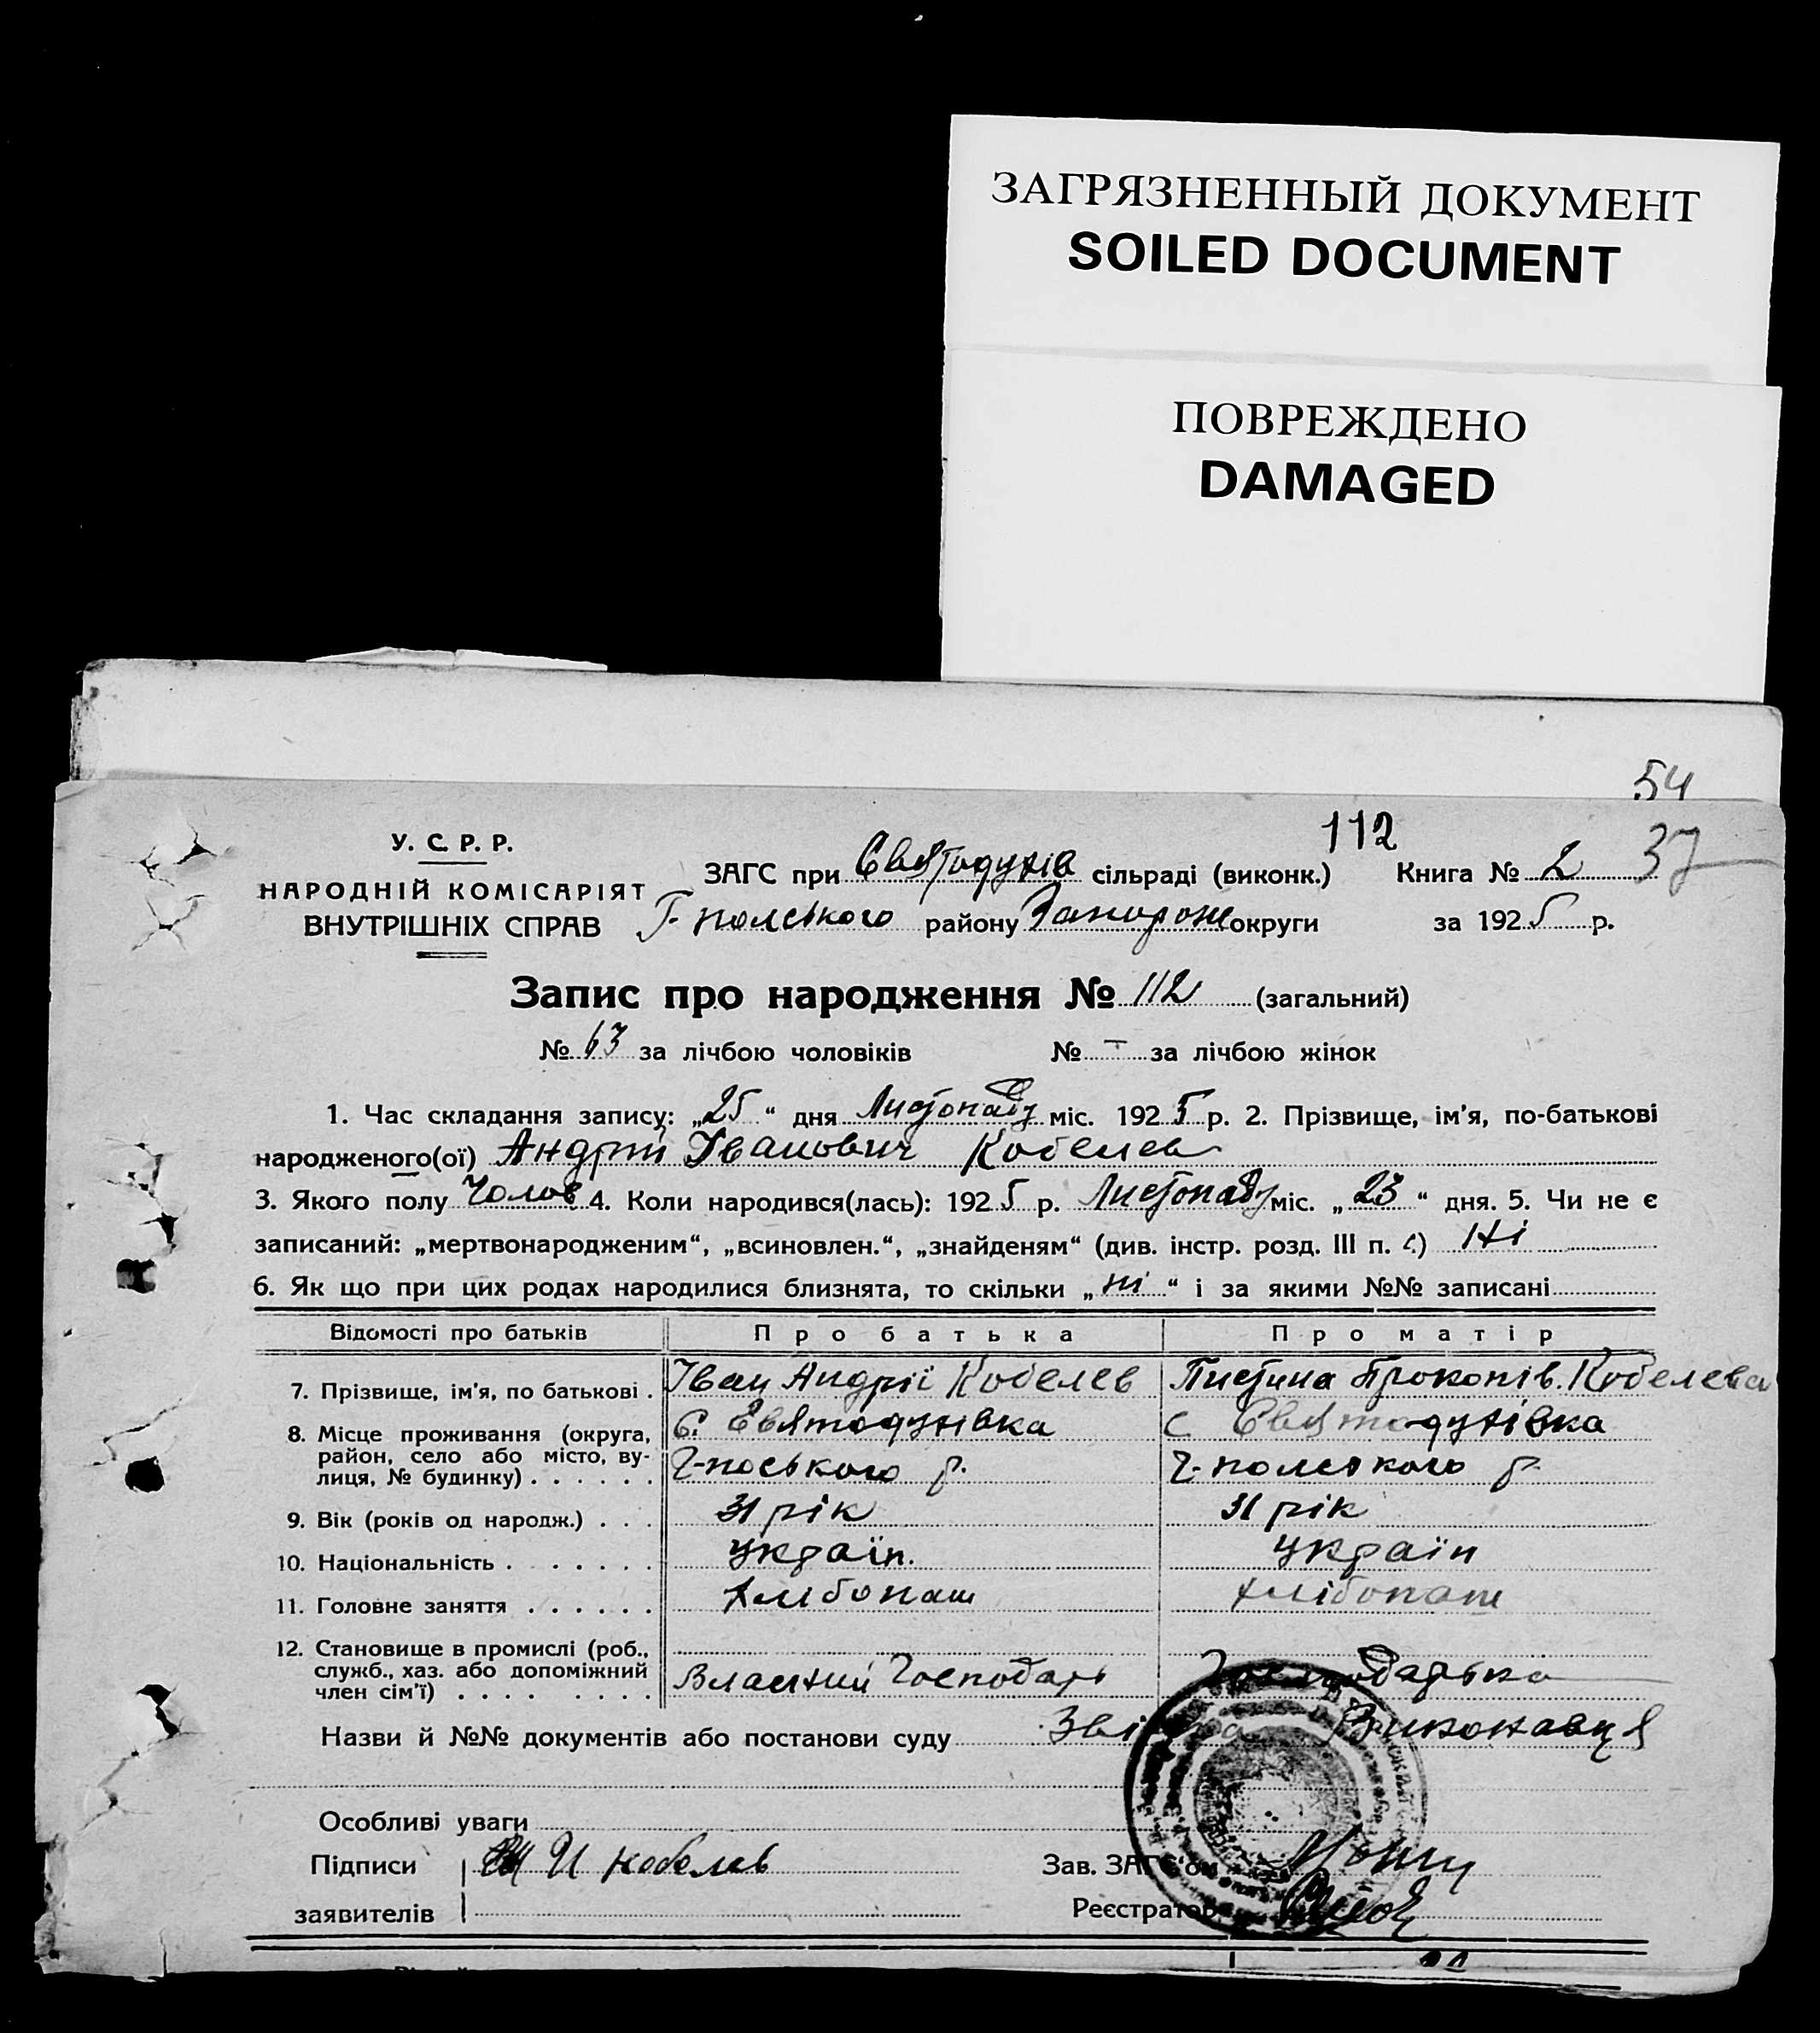 ЗАГРЯЗНЕННЫЙ ДОКУМЕНТ
SOILED DOCUMENT
ПОВРЕЖДЕНО
DAMAGED
54
112
37
У. С. Р. Р.
НАРОДНІЙ КОМІСАРІЯТ
ВНУТРІШНІХ СПРАВ
ЗАГС при Святодухів сільраді (виконк.) Книга № 2
Г-польського району Запорож округи за 1925 р.
Запис про народження № 112 (загальний)
№ 63 за лічбою чоловіків № - за лічбою жінок
1. Час складання запису: „25“ дня Листопаду міс. 1925 р. 2. Прізвище, ім’я, по-батькові
народженого(ої) Андрій Іванович Кобелев
3. Якого полу Чолов 4. Коли народився(лась): 1925 р. Листопаду міс. „23“ дня. 5. Чи не є
записаний: „мертвонародженим“, „всиновлен.“, „знайденям“ (див. інстр. розд. III п. ) Ні
6. Як що при цих родах народилися близнята, то скільки „ні“ і за якими №№ записані
Відомості про батьків Про батька Про матір
7. Прізвище, ім’я, по батькові . Іван Андрії Кобелев Пистина Прокопів. Кобелева
8. Місце проживання (округа, район, село або місто, вулиця, № будинку) . . . . . . С. Святодухівка с Святодухівка
Г-поського р. Г-полского р.
9. Вік (років од народж.) . . . 31 рік 31 рік
10. Національність . . . . . . . Україн. Україн
11. Головне заняття . . . . . . Хлібопаш хлібопаш
12. Становище в промислі (роб., служб., хаз. або допоміжний член сім’ї) . . . . . . . . Власний Господарь Господарька
Назви й №№ документів або постанови суду Виконавця
Особливі уваги
Підписи И кобелев Зав. ЗАГС’ом
заявителів Реєстратор